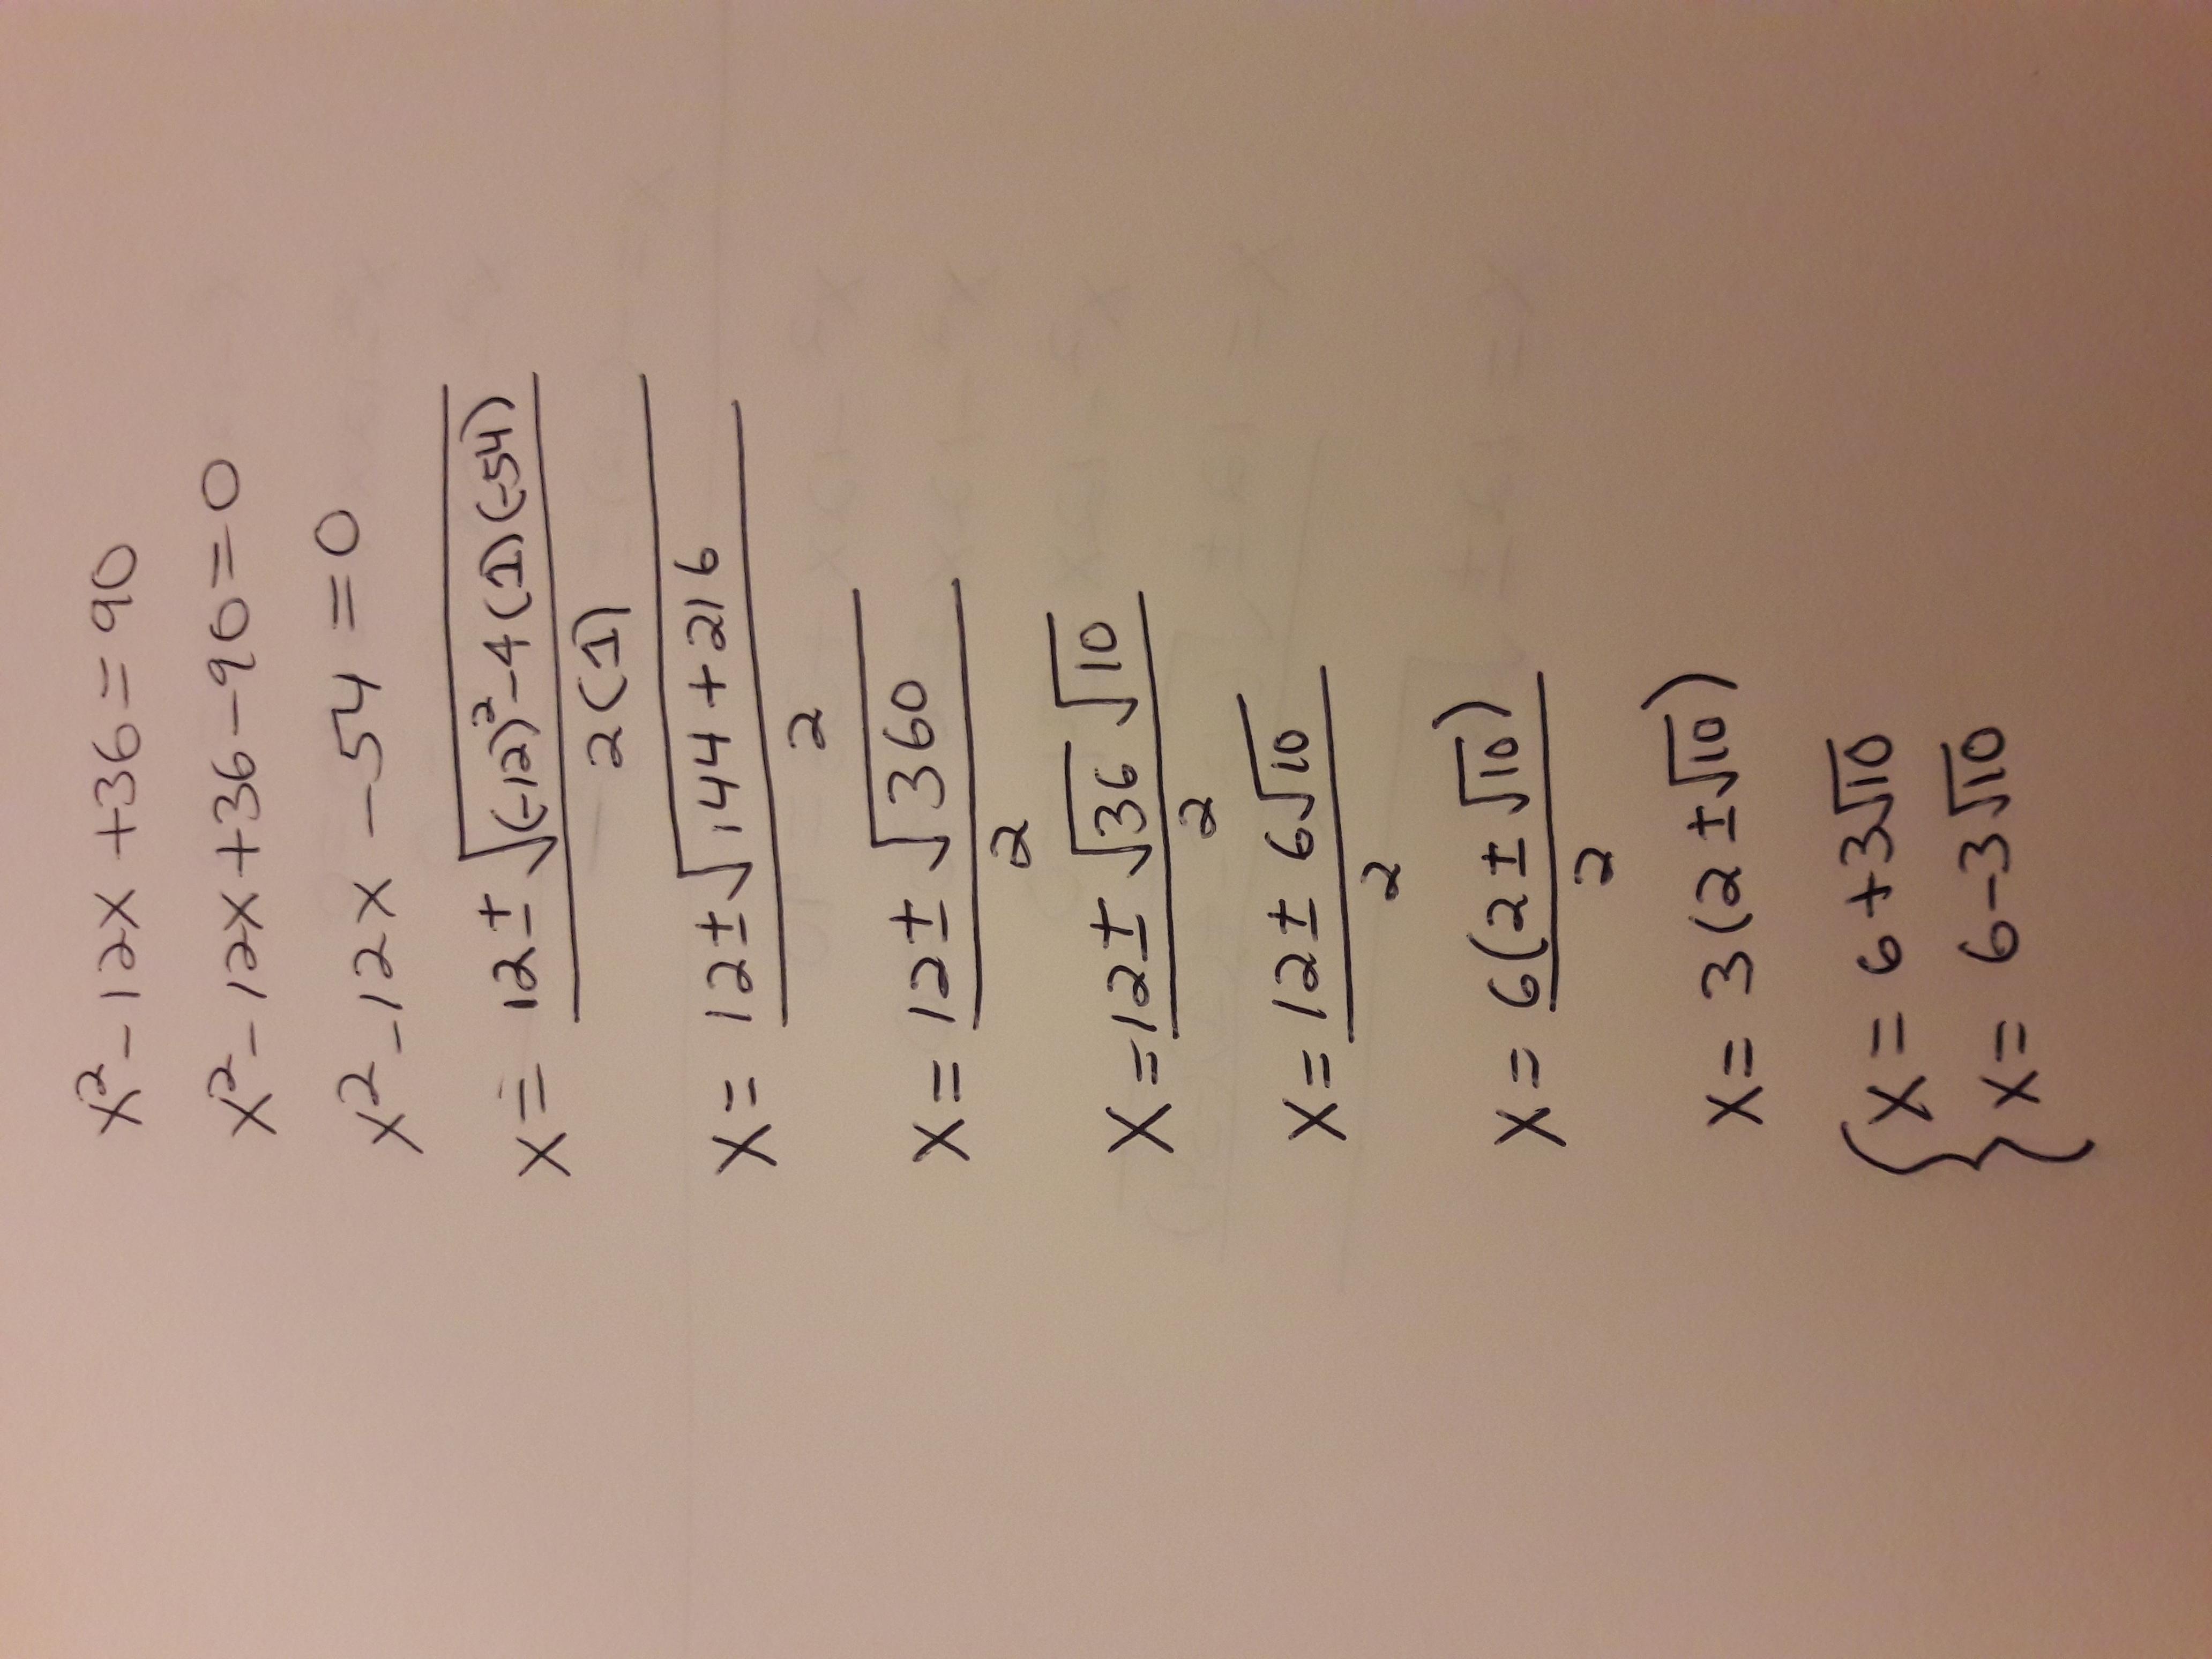 x² - 12x + 36 = 90
x² - 12x + 36 - 90 = 0
x² - 12x - 54 = 0
x = (12 ± √((-12)² - 4(1)(-54))) / 2(1)
x = (12 ± √(144 + 216)) / 2
x = (12 ± √360) / 2
x = (12 ± √36 √10) / 2
x = (12 ± 6√10) / 2
x = 6(2 ± √10) / 2
x = 3(2 ± √10)
{ x = 6 + 3√10
x = 6 - 3√10